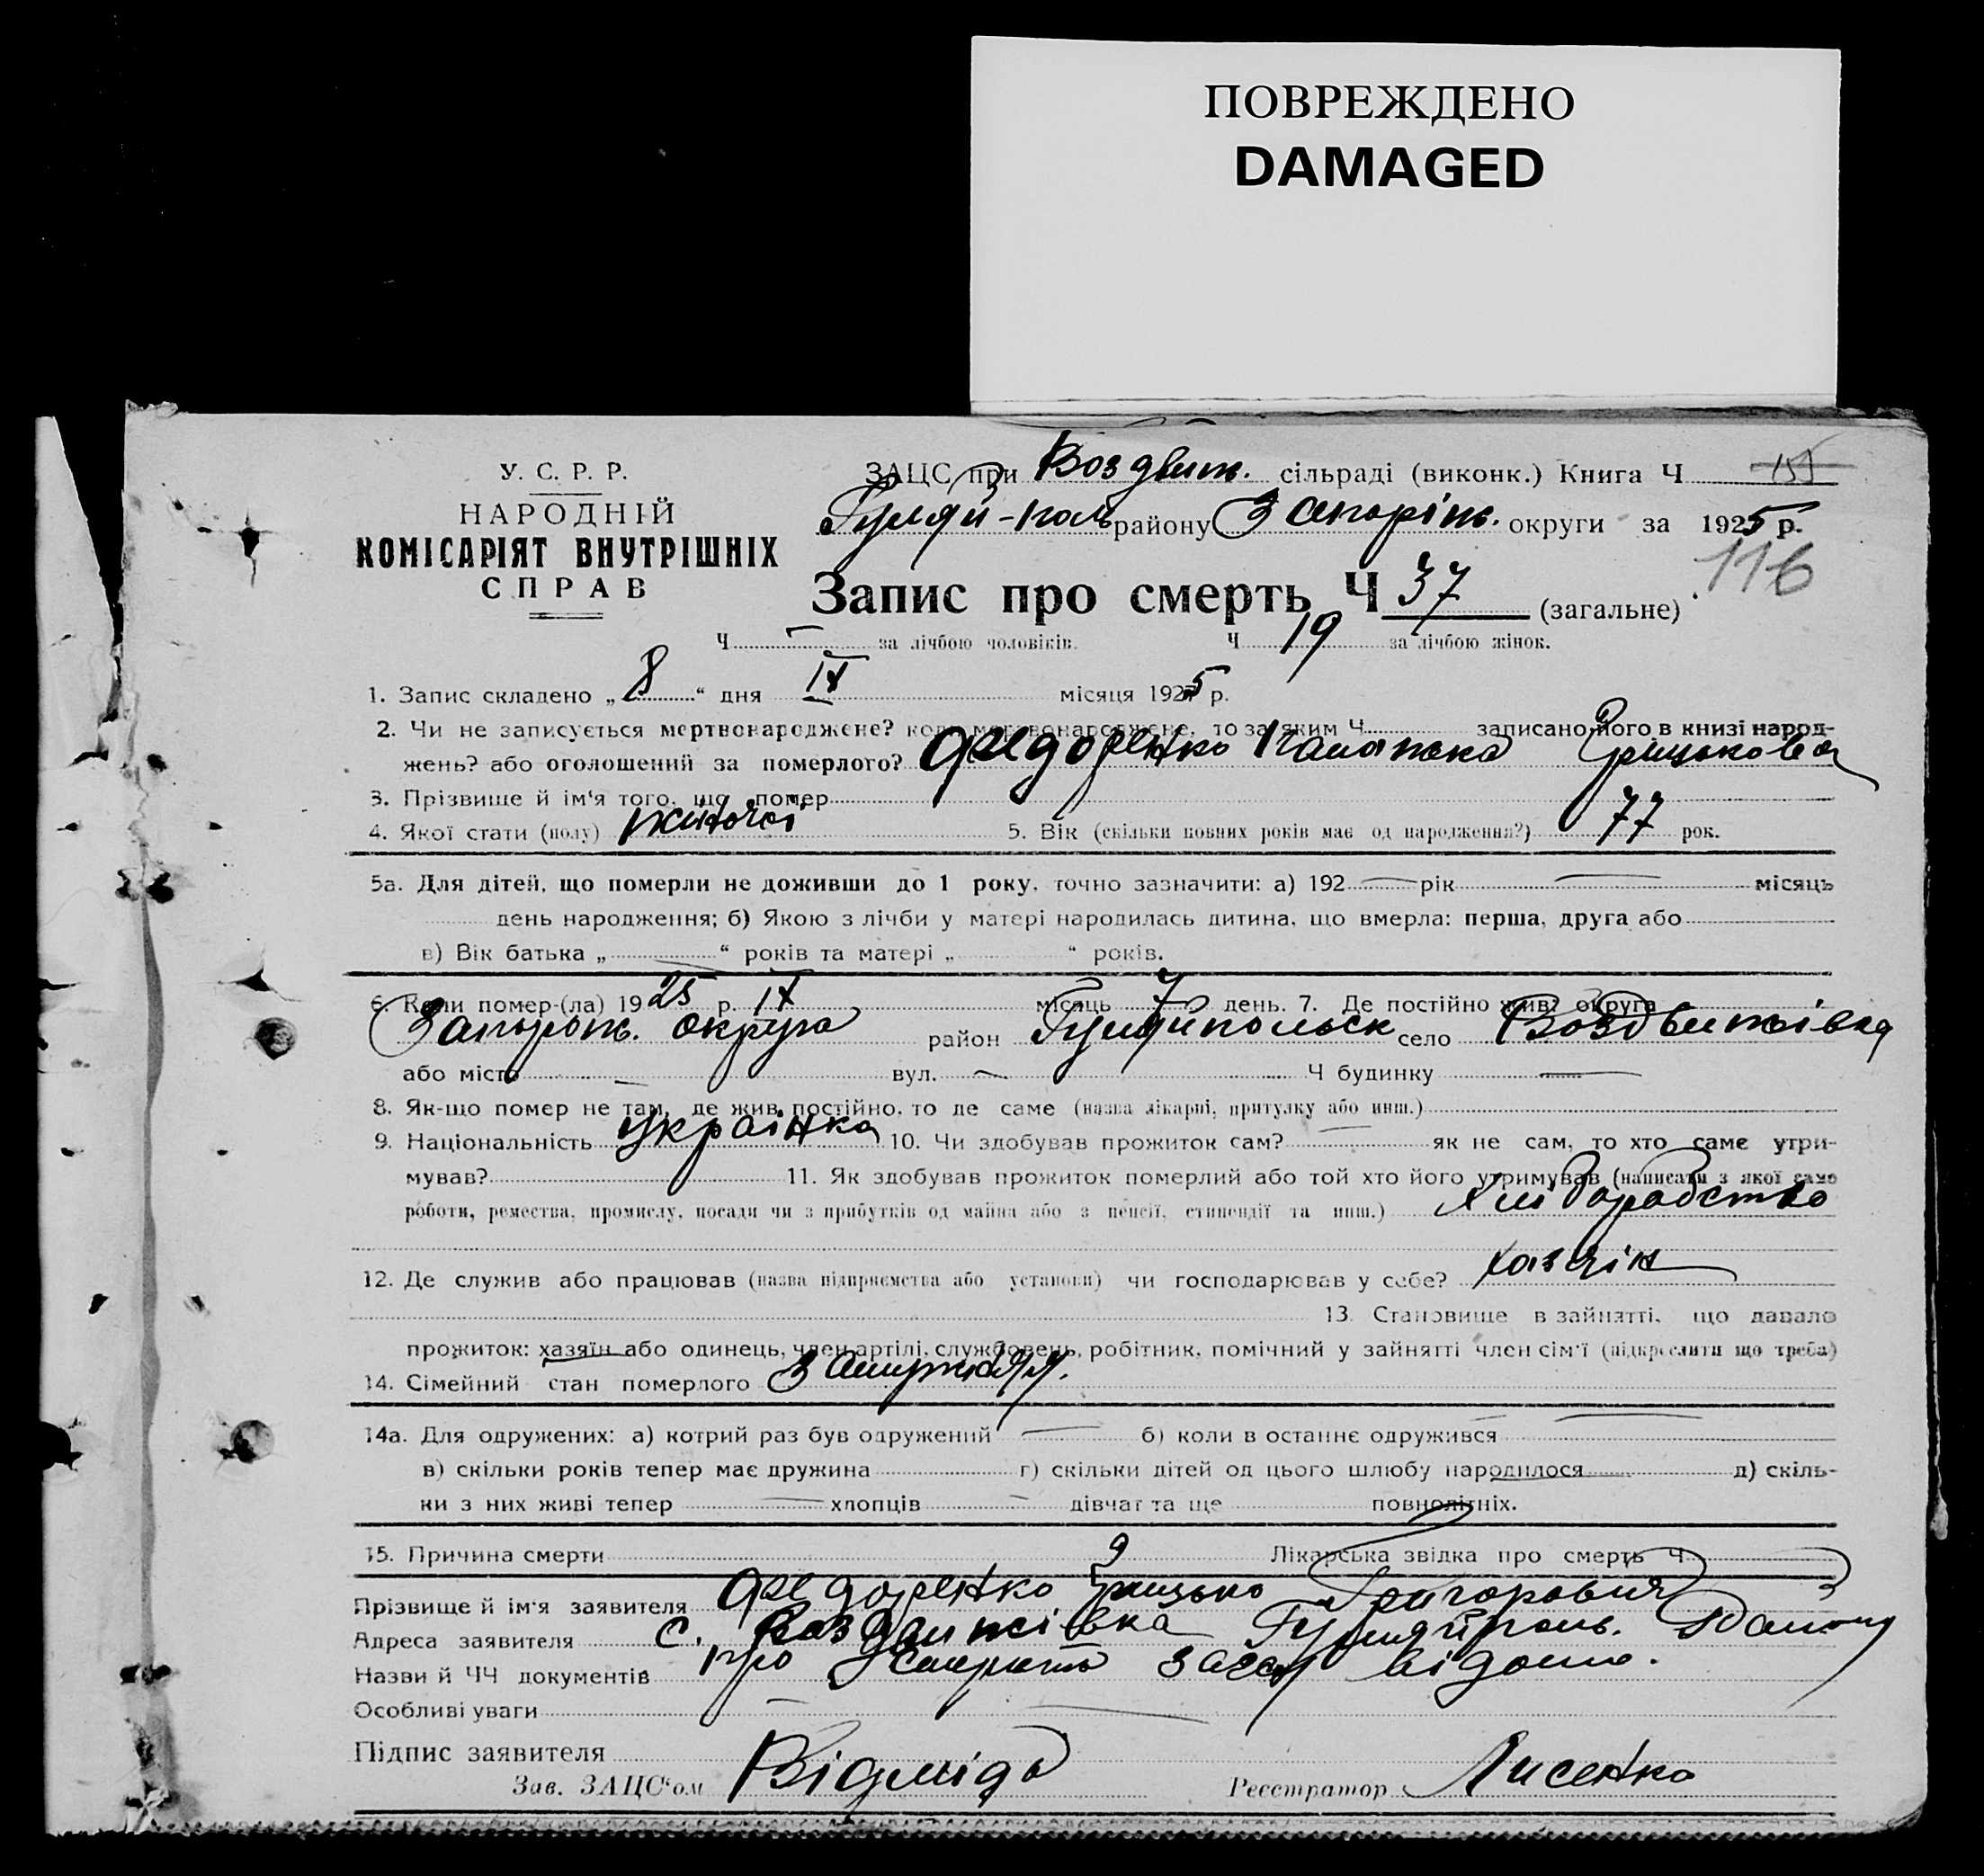 ПОВРЕЖДЕНО
DAMAGED
У. С. Р. Р.
НАРОДНІЙ
КОМІСАРІЯТ ВНУТРІШНІХ
СПРАВ
ЗАЦС при Воздвиж. сільраді (виконк.) Книга Ч 155
Гуляй-поль району Запоріж. округи за 1925 р.
116
Запис про смерть Ч 37 (загальне)
Ч — за лічбою чоловіків. Ч 19 за лічбою жінок.
1. Запис складено „ 8 “ дня IX місяця 1925 р.
2. Чи не записується мертвонароджене? коли мертвонароджене, то за яким Ч записано його в книзі народ-
жень? або оголошений за померлого? Федоренко Грицькова
3. Прізвище й ім‘я того, що помер
4. Якої стати (полу) жіночої 5. Вік (скільки повних років має од народження?) 77 рок.
5а. Для дітей, що померли не доживши до 1 року, точно зазначити: а) 192 — рік — місяць
день народження; б) Якою з лічби у матері народилась дитина, що вмерла: перша, друга або
в) Вік батька „ “ років та матері „ “ років.
6. Коли помер-(ла) 1925 р. IX місяць 7 день. 7. Де постійно жив? округа
Запорож. округа район Гуляйпольск село Воздвижівка
або місто — вул. — Ч будинку —
8. Як-що помер не там, де жив постійно, то де саме (назва лікарні, притулку або инш.)
9. Національність українка 10. Чи здобував прожиток сам? — як не сам, то хто саме утри-
мував? 11. Як здобував прожиток померлий або той хто його утримував (написати з якої само
роботи, ремества, промислу, посади чи з прибутків од майна або з пенсії, стипендії та инш.) Хліборобство
12. Де служив або працював (назва підприємства або установи) чи господарював у себе? хазяїн
13. Становище в зайнятті, що давало
прожиток: хазяїн або одинець, член артілі, службовець, робітник, помічний у зайнятті член сім‘ї (підкреслити що треба)
14. Сімейний стан померлого
14а. Для одружених: а) котрий раз був одружений — б) коли в останнє одружився —
в) скільки років тепер має дружина г) скільки дітей од цього шлюбу народилося д) скіль-
ки з них живі тепер — хлопців — дівчат та ще повнолітніх.
15. Причина смерти Лікарська звідка про смерть Ч
Прізвище й ім‘я заявителя Федоренко Грицько Григорович
Адреса заявителя с. Воздвижівка Гуляйполь. Району
Назви й ЧЧ документів про смерть загсу відомо.
Особливі уваги —
Підпис заявителя
Зав. ЗАЦС‘ом Реєстратор Лисенко